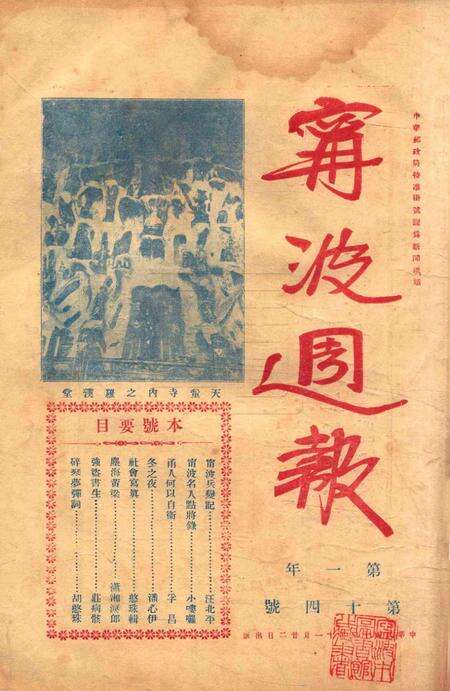 甯波週報
第一年
第十四號
中華郵政局特准掛號認爲新聞紙類
天童寺內之羅漢堂
本號要目
甯波兵變記 汪北平
甯波名人點將錄 小嘍囉
甬人何以自衛 子昌
冬之夜 潘心伊
社會寫眞 憨珠輯
塵海黃粱 瀟湘漁郎
強盜書生 莊病骸
碎琴夢彈詞 胡憨珠
十一月廿二日出版